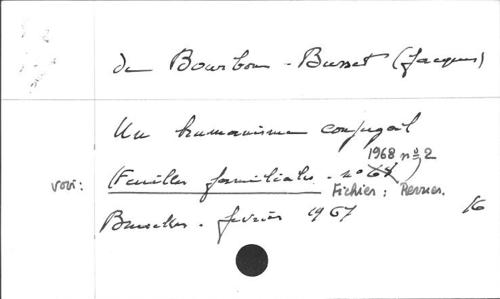 de Bourbon-Busset (Jacques)
Un humanisme conjugal
1968 n° 2
voir: (Feuilles familiales. n° 67)
Fichier: Revues.
Bruxelles. février 1967
16